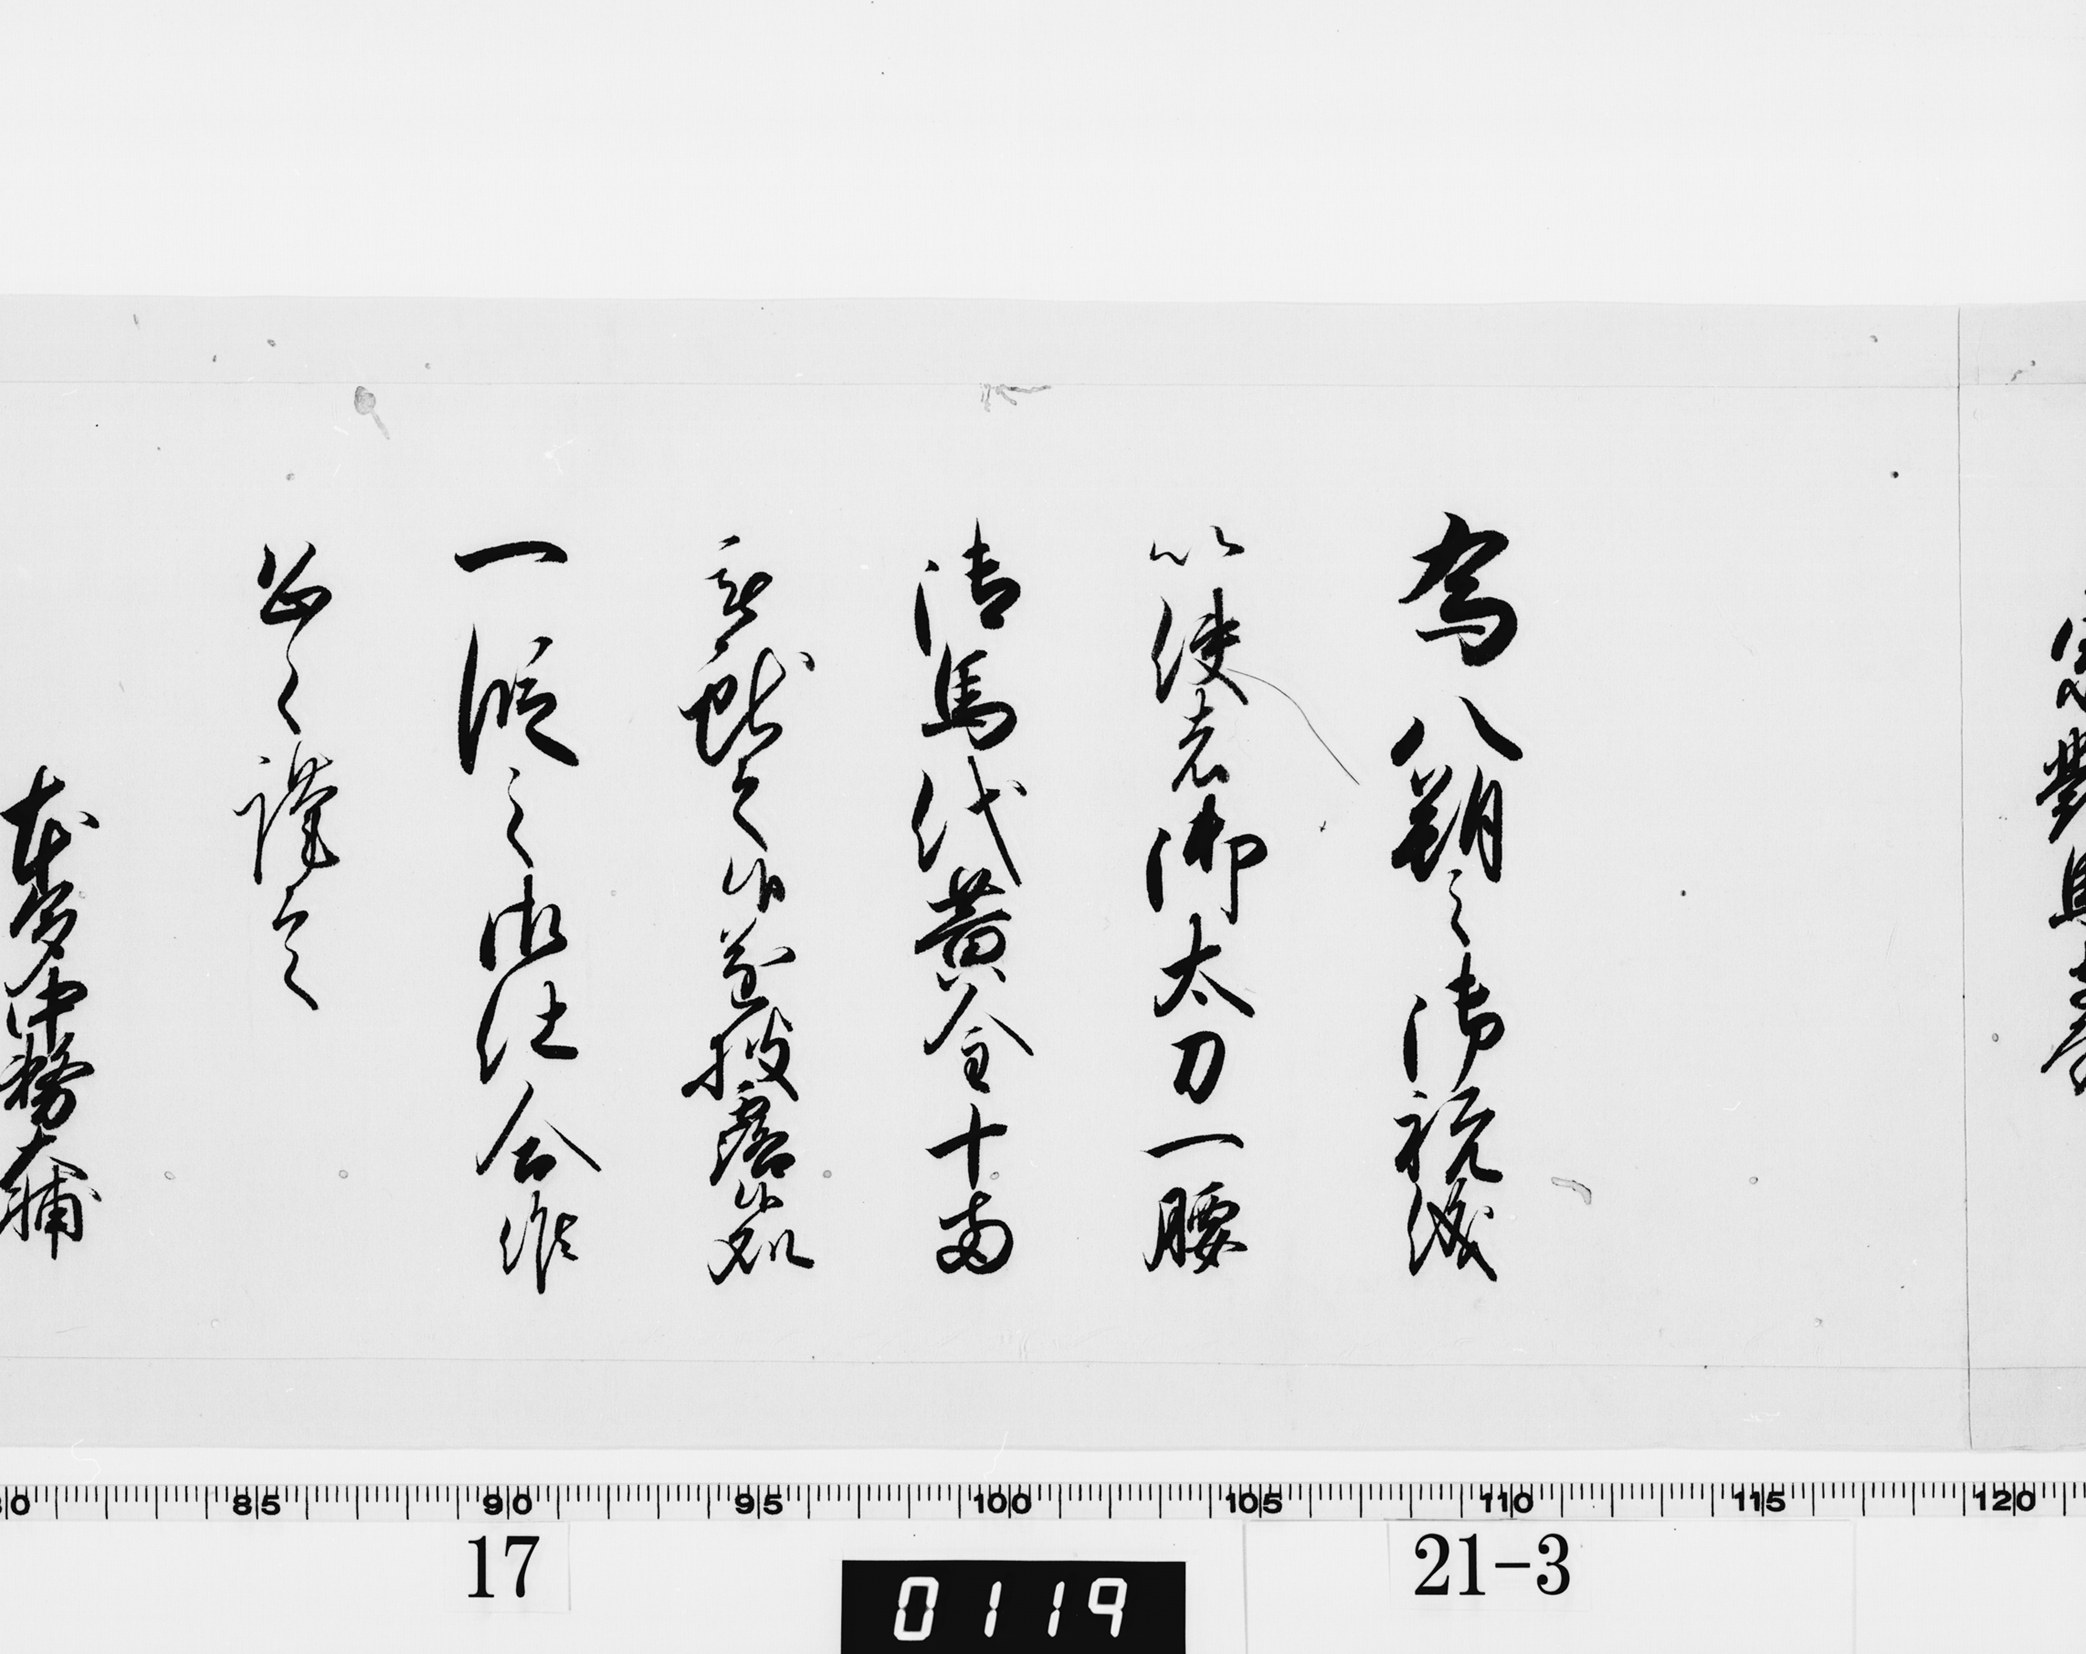 宗對馬守
為八朔之御祝儀
以使者御太刀一腰
御馬代黄金十両
被献之候遂披露候処
一段之御仕合候
恐々謹言
本多中務大輔
17
0119
21-3
80 85 90 95 100 105 110 115 120